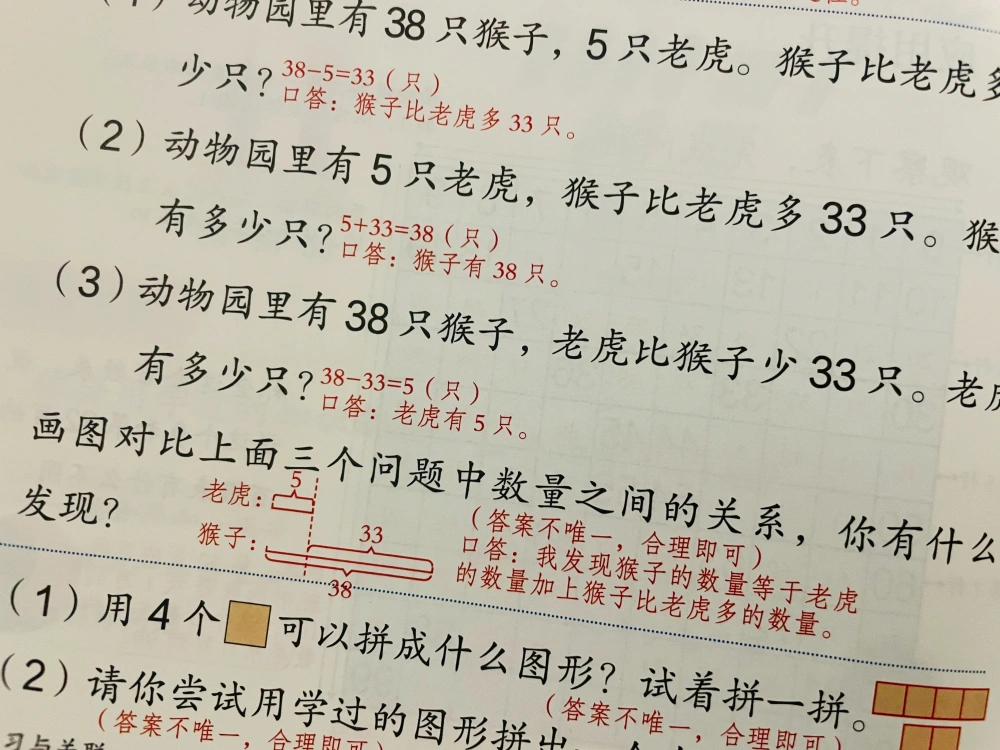 动物园里有38只猴子，5只老虎。猴子比老虎多
少只？
38-5=33（只）
口答：猴子比老虎多33只。
（2）动物园里有5只老虎，猴子比老虎多33只。猴
有多少只？
5+33=38（只）
口答：猴子有38只。
（3）动物园里有38只猴子，老虎比猴子少33只。老虎
有多少只？
38-33=5（只）
口答：老虎有5只。
画图对比上面三个问题中数量之间的关系，你有什么
发现？
5
老虎：
猴子：
33
38
（答案不唯一，合理即可）
口答：我发现猴子的数量等于老虎
的数量加上猴子比老虎多的数量。
（1）用4个 可以拼成什么图形？试着拼一拼。
（2）请你尝试用学过的图形拼出一个
（答案不唯一，合理即可）
（答案不唯一，合理即可）
习与关联